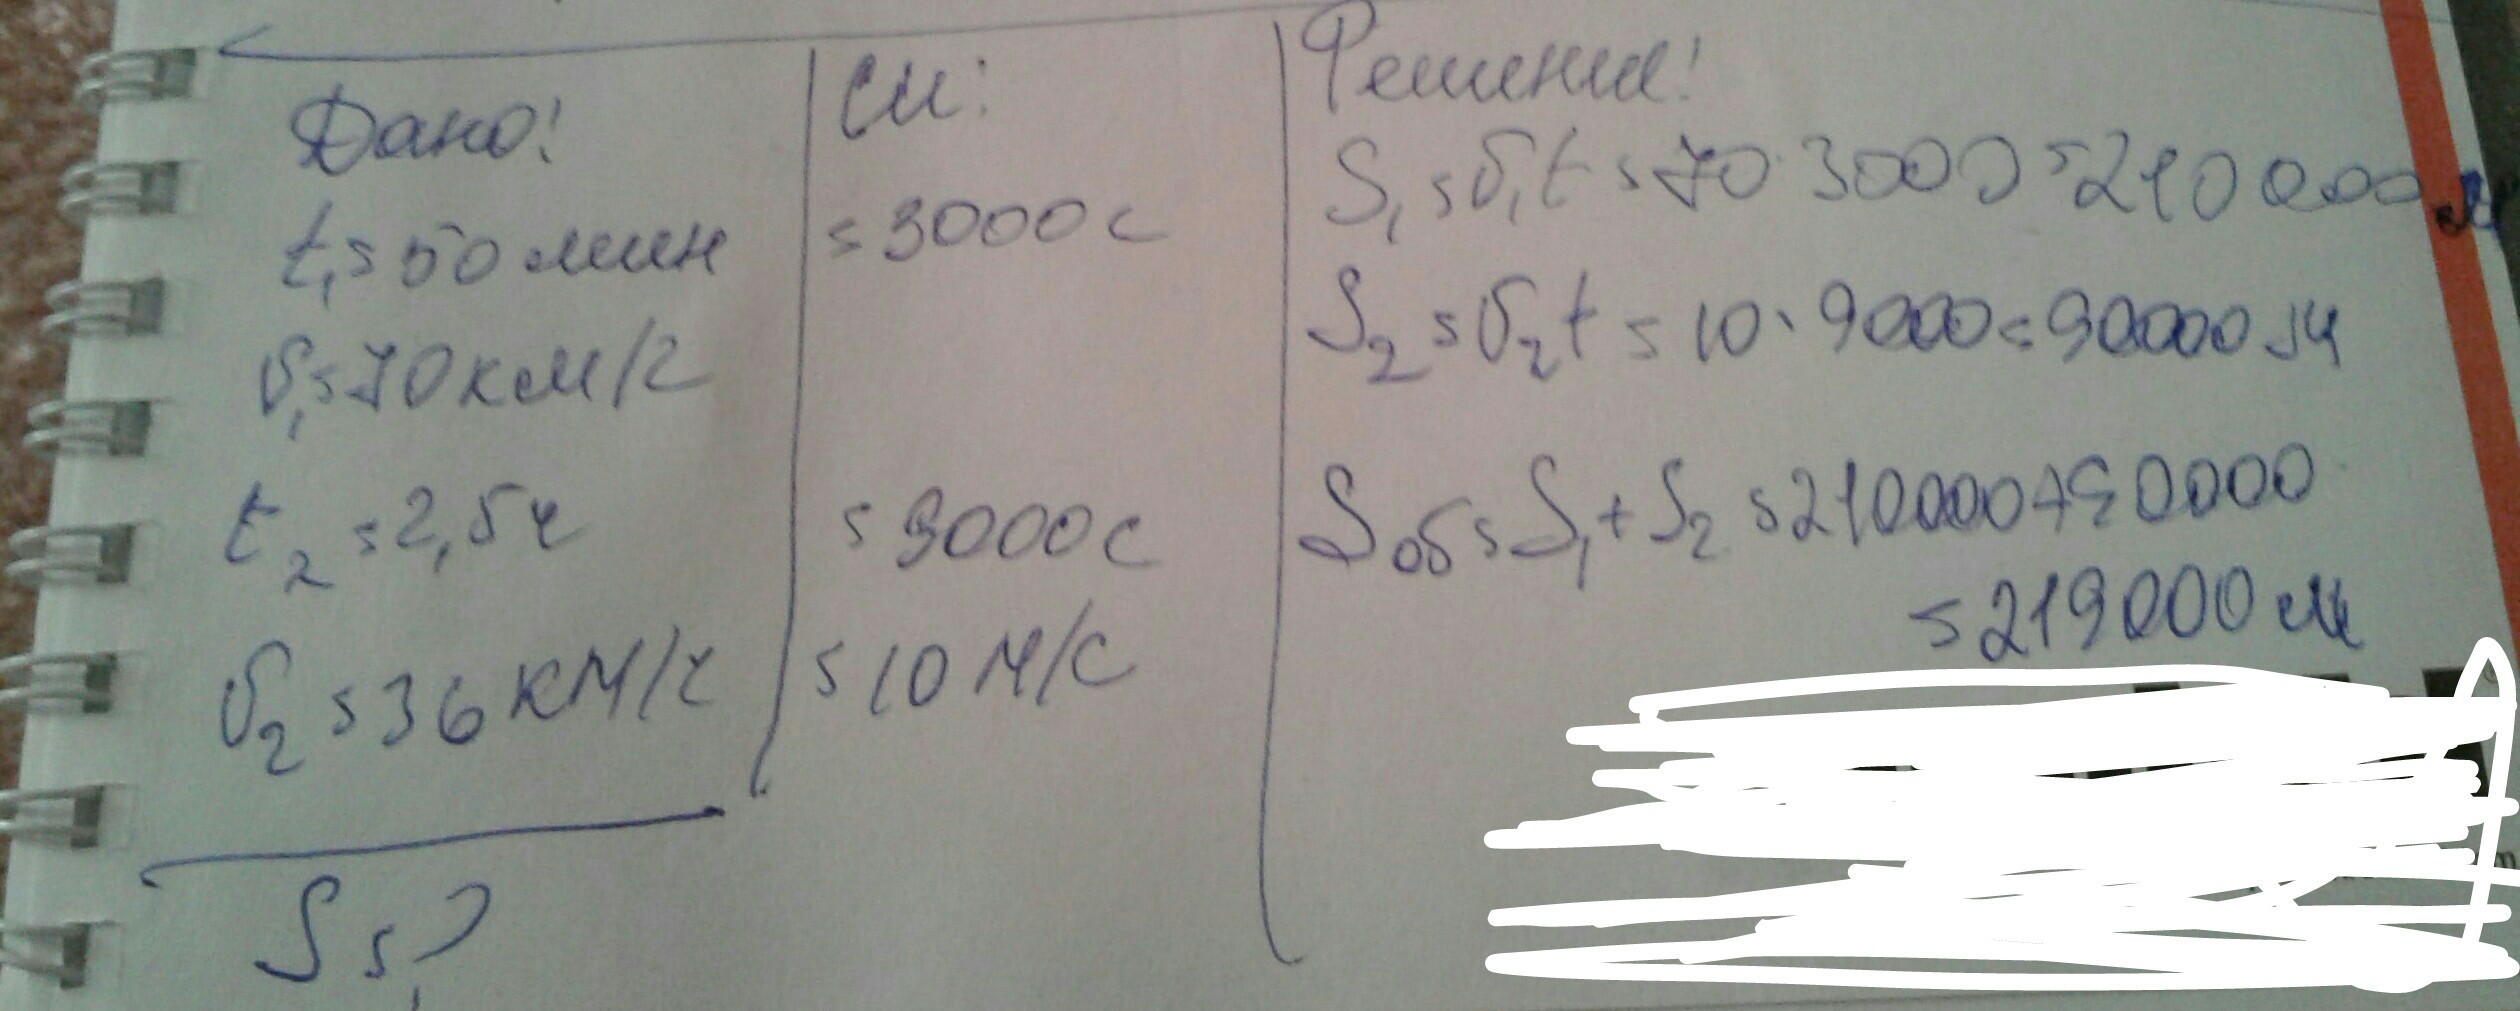 Дано:
t₁ = 50 мин
υ₁ = 70 км/г
t₂ = 2,5 ч
υ₂ = 36 км/ч
S = ?
СИ:
= 3000 с
= 9000 с
= 10 м/с
Решение:
S₁ = υ₁t = 70 · 3000 = 210000 м
S₂ = υ₂t = 10 · 9000 = 90000 м
Sоб = S₁ + S₂ = 210000 + 90000
= 219000 м